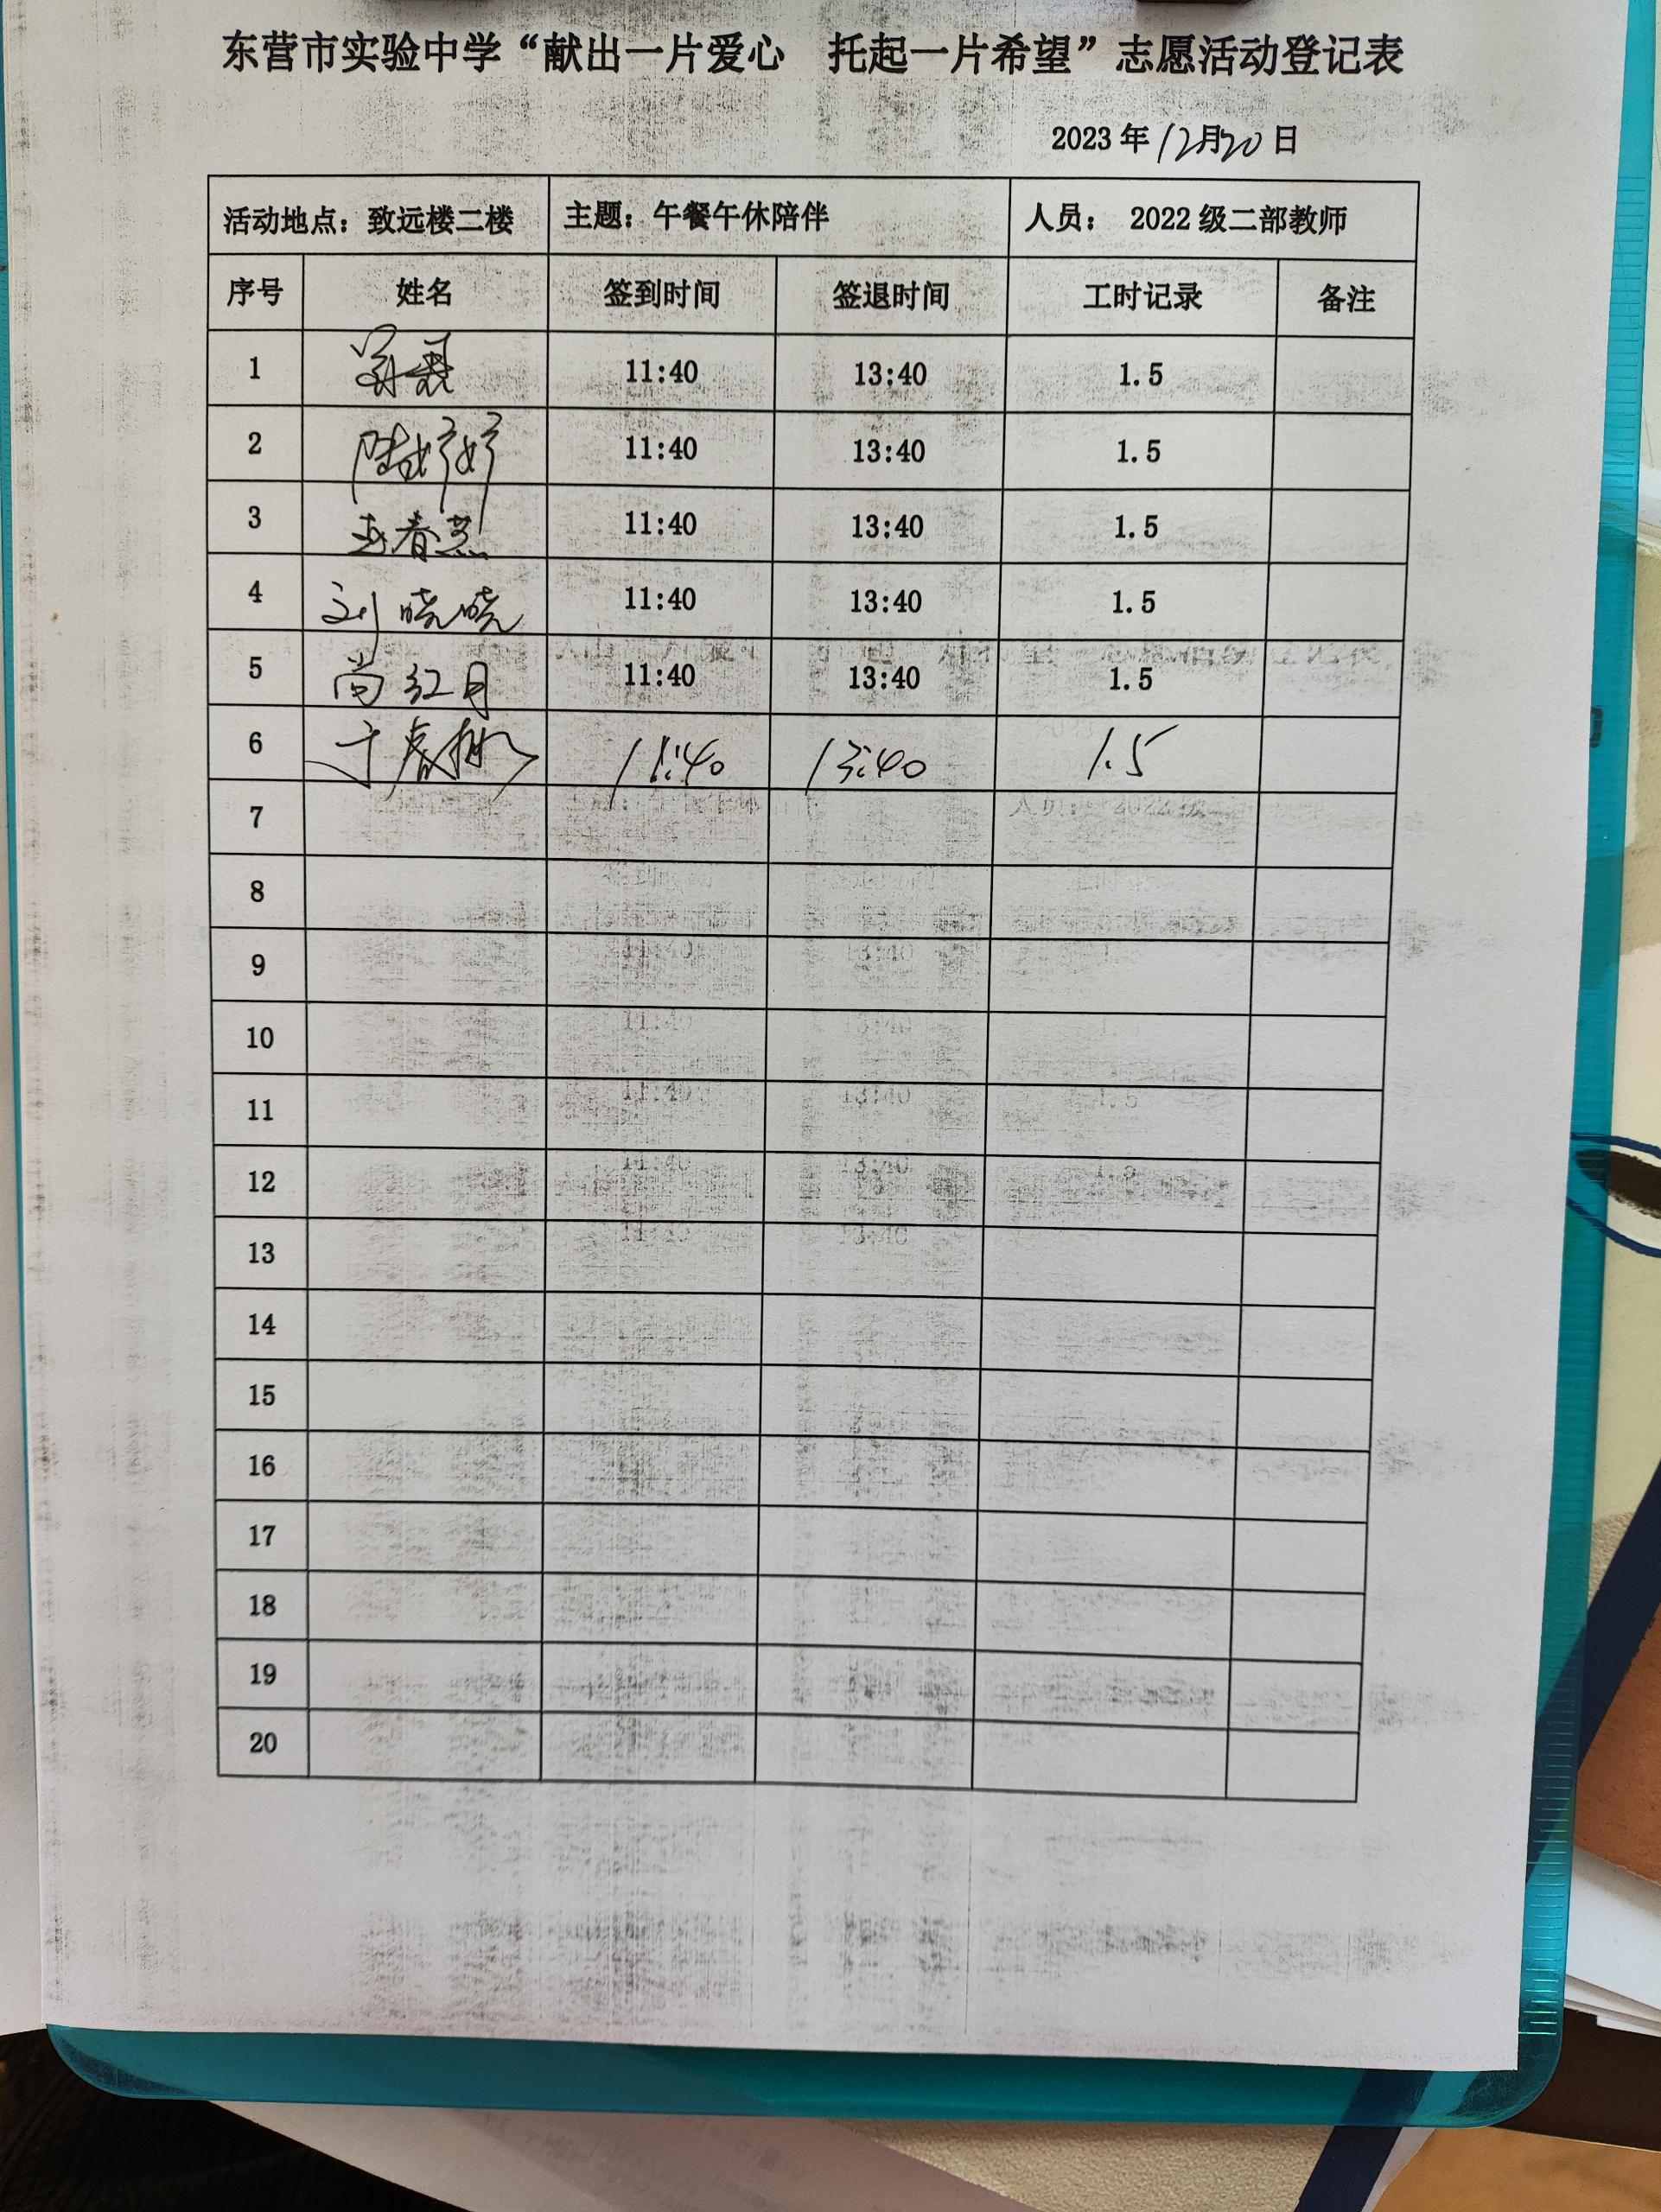 东营市实验中学“献出一片爱心 托起一片希望”志愿活动登记表
2023 年 12月20 日
活动地点：致远楼二楼 主题：午餐午休陪伴 人员： 2022 级二部教师
序号 姓名 签到时间 签退时间 工时记录 备注
1 11:40 13:40 1.5
2 陆婷婷 11:40 13:40 1.5
3 春燕 11:40 13:40 1.5
4 刘晓晓 11:40 13:40 1.5
5 尚红月 11:40 13:40 1.5
6 于春 11:40 13:40 1.5
7
8
9
10
11
12
13
14
15
16
17
18
19
20